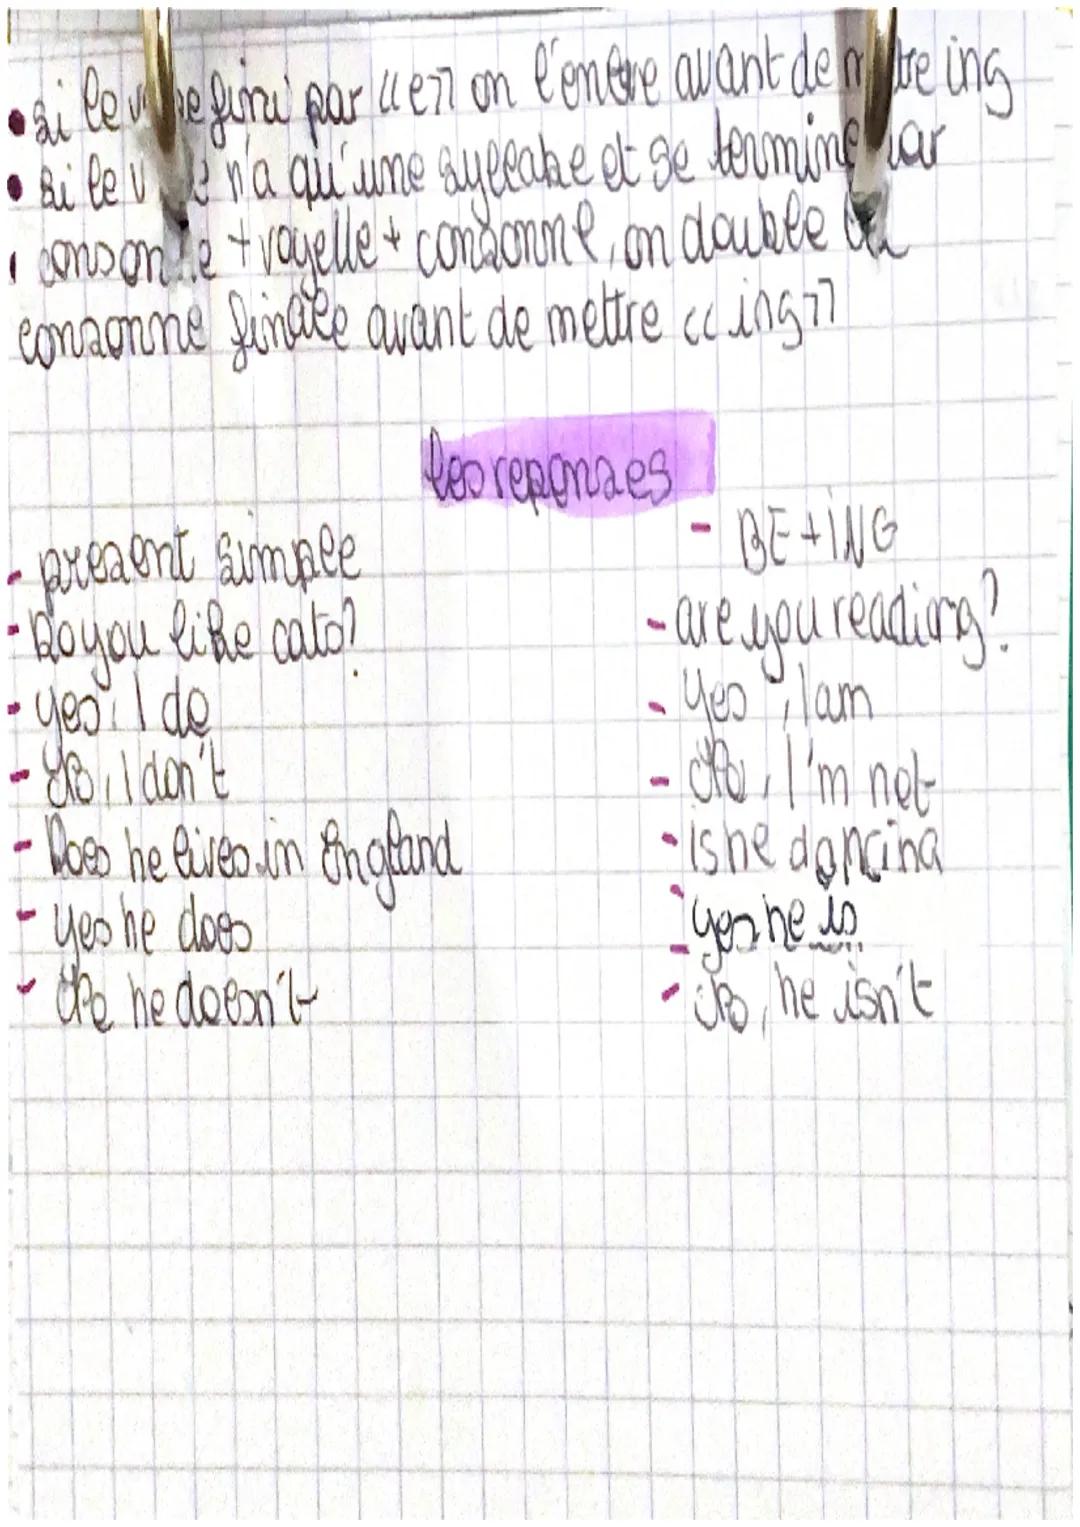 • si le verbe fini par «e» on l'enève avant de mettre ing
• si le verbe n'a qu'une syllabe et se termine par
• consonne + voyelle + consonne, on double la
consonne finale avant de mettre «ing»
les reponses
- present simple
- Do you like cats?
- yes, I do
- No, I don't
- Does he lives in England
- yes he does
- No he doesn't
- BE + ING
- are you reading?
- yes, I am
- No, I'm not
- is he dancing
- yes he is
- No, he isn't